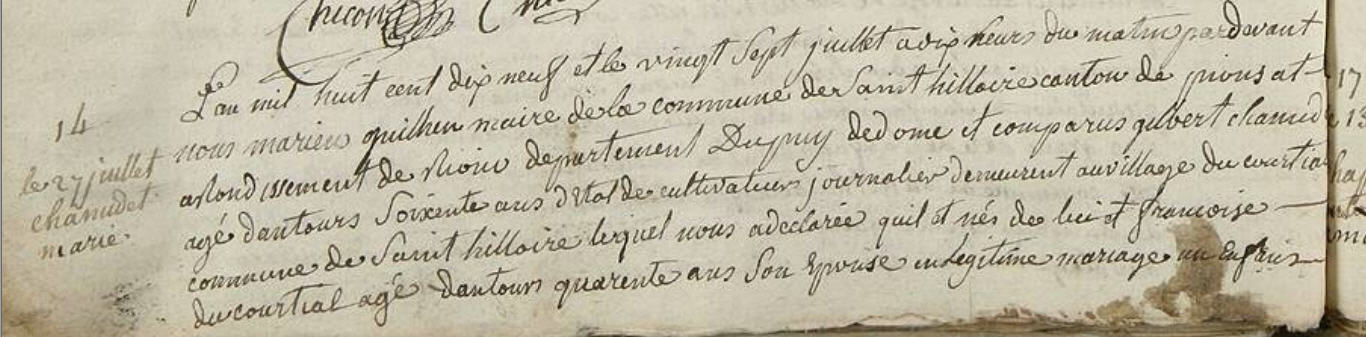 14
le 27 juillet
chamdet
marie
L'an mil huit cent dix neuf et le vingt Sept juillet a dix heurs du matin pardevant
nous marien quilhen maire de la commune de Saint hillaire canton de pions at
arondissement de Riom departement Dupuy dedome et comparus gilbert chamd
agé dantours Soixente ans d'Etat de cultivateur journalier demeurent au village du courtial
commune de Saint hilloire lequel nous adeclarée quil et nés de lui et francoise
du courtial agé dantours quarente ans Son Epouse en Legitime mariage un Enfans